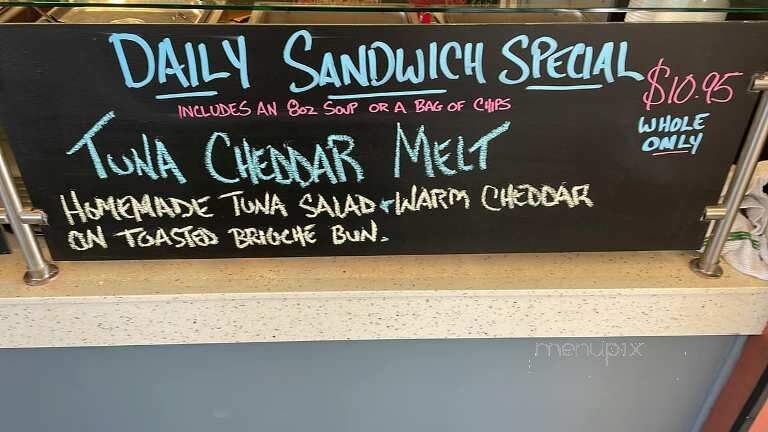 DAILY SANDWICH SPECIAL
$10.95
INCLUDES AN 8oz SOUP OR A BAG OF CHIPS
WHOLE
ONLY
TUNA CHEDDAR MELT
HOMEMADE TUNA SALAD + WARM CHEDDAR
ON TOASTED BRIOCHE BUN.
menupix